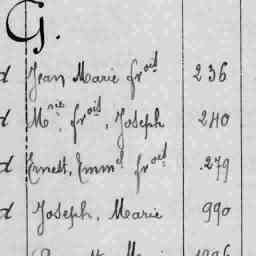 G.
d Jean Marie frçois 236
d Mrie, frçois, Joseph 240
d Ernest, Emmel frçois 279
d Joseph, Marie 990